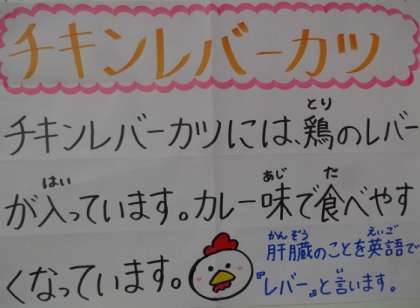 チキンレバーカツ
チキンレバーカツには、鶏のレバー
とり
が入っています。カレー味で食べやす
はい あじ た
くなっています。
肝臓のことを英語で
かんぞう えいご
『レバー』と言います。
い